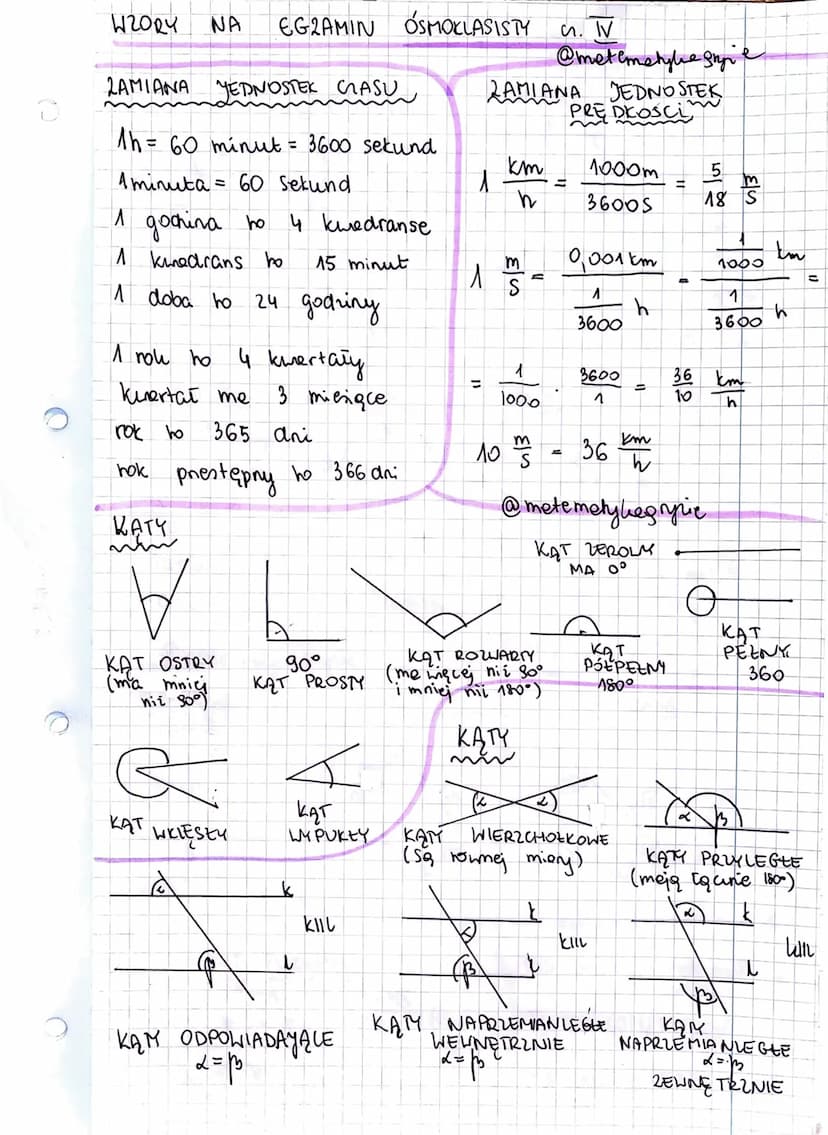 WZORY NA EGZAMIN ÓSMOKLASISTY cz. IV
@matematykagryzie
ZAMIANA JEDNOSTEK CZASU
1h = 60 minut = 3600 sekund
1 minuta = 60 sekund
1 godzina to 4 kwadranse
1 kwadrans to 15 minut
1 doba to 24 godziny
1 rok to 4 kwartały
kwartał ma 3 miesiące
rok to 365 dni
rok przestępny to 366 dni
ZAMIANA JEDNOSTEK
PRĘDKOŚCI
1 km/h = 1000m/3600s = 5/18 m/s
1 m/s = 0,001 km / 1/3600 h = 1/1000 km / 1/3600 h =
= 1/1000 · 3600/1 = 36/10 km/h
10 m/s = 36 km/h
@matematykagryzie
KĄTY
KĄT ZEROWY
MA 0°
KĄT OSTRY
(ma mniej
niż 90°)
90°
KĄT PROSTY
KĄT ROZWARTY
(ma więcej niż 90°
i mniej niż 180°)
KĄT
PÓŁPEŁNY
180°
KĄT
PEŁNY
360
KĄT WKLĘSŁY
KĄT
WYPUKŁY
KĄTY
α α
KĄTY WIERZCHOŁKOWE
(są równej miary)
α β
KĄTY PRZYLEGŁE
(mają łącznie 180°)
α k
k||l
β l
KĄTY ODPOWIADAJĄCE
α=β
k
α k||l
β l
KĄTY NAPRZEMIANLEGŁE
WEWNĘTRZNIE
α=β
α k
k||l
l
β
KĄTY
NAPRZEMIANLEGŁE
α=β
ZEWNĘTRZNIE